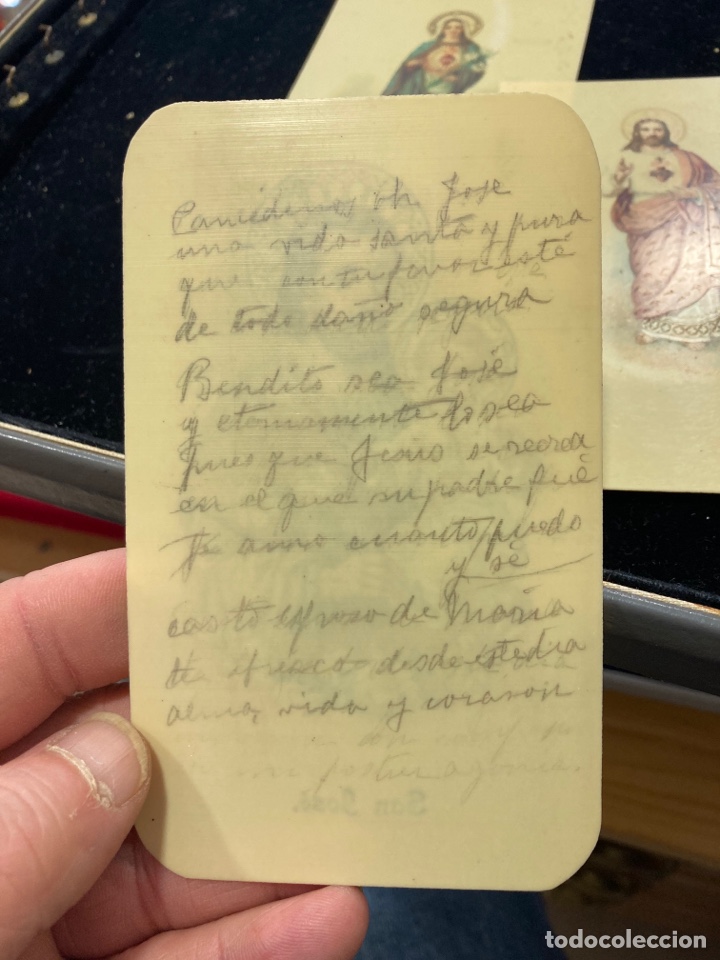 Concédenos oh José
una vida santa y pura
que con tu favor esté
de todo daño segura
Bendito sea José
y eternamente lo sea
pues que Jesus se recrea
en el que su padre fué
Te amo cuanto puedo
y sé
casto esposo de Maria
te ofresco desde este dia
alma, vida y corason
con
postura agonia.
San José.
todocoleccion.net